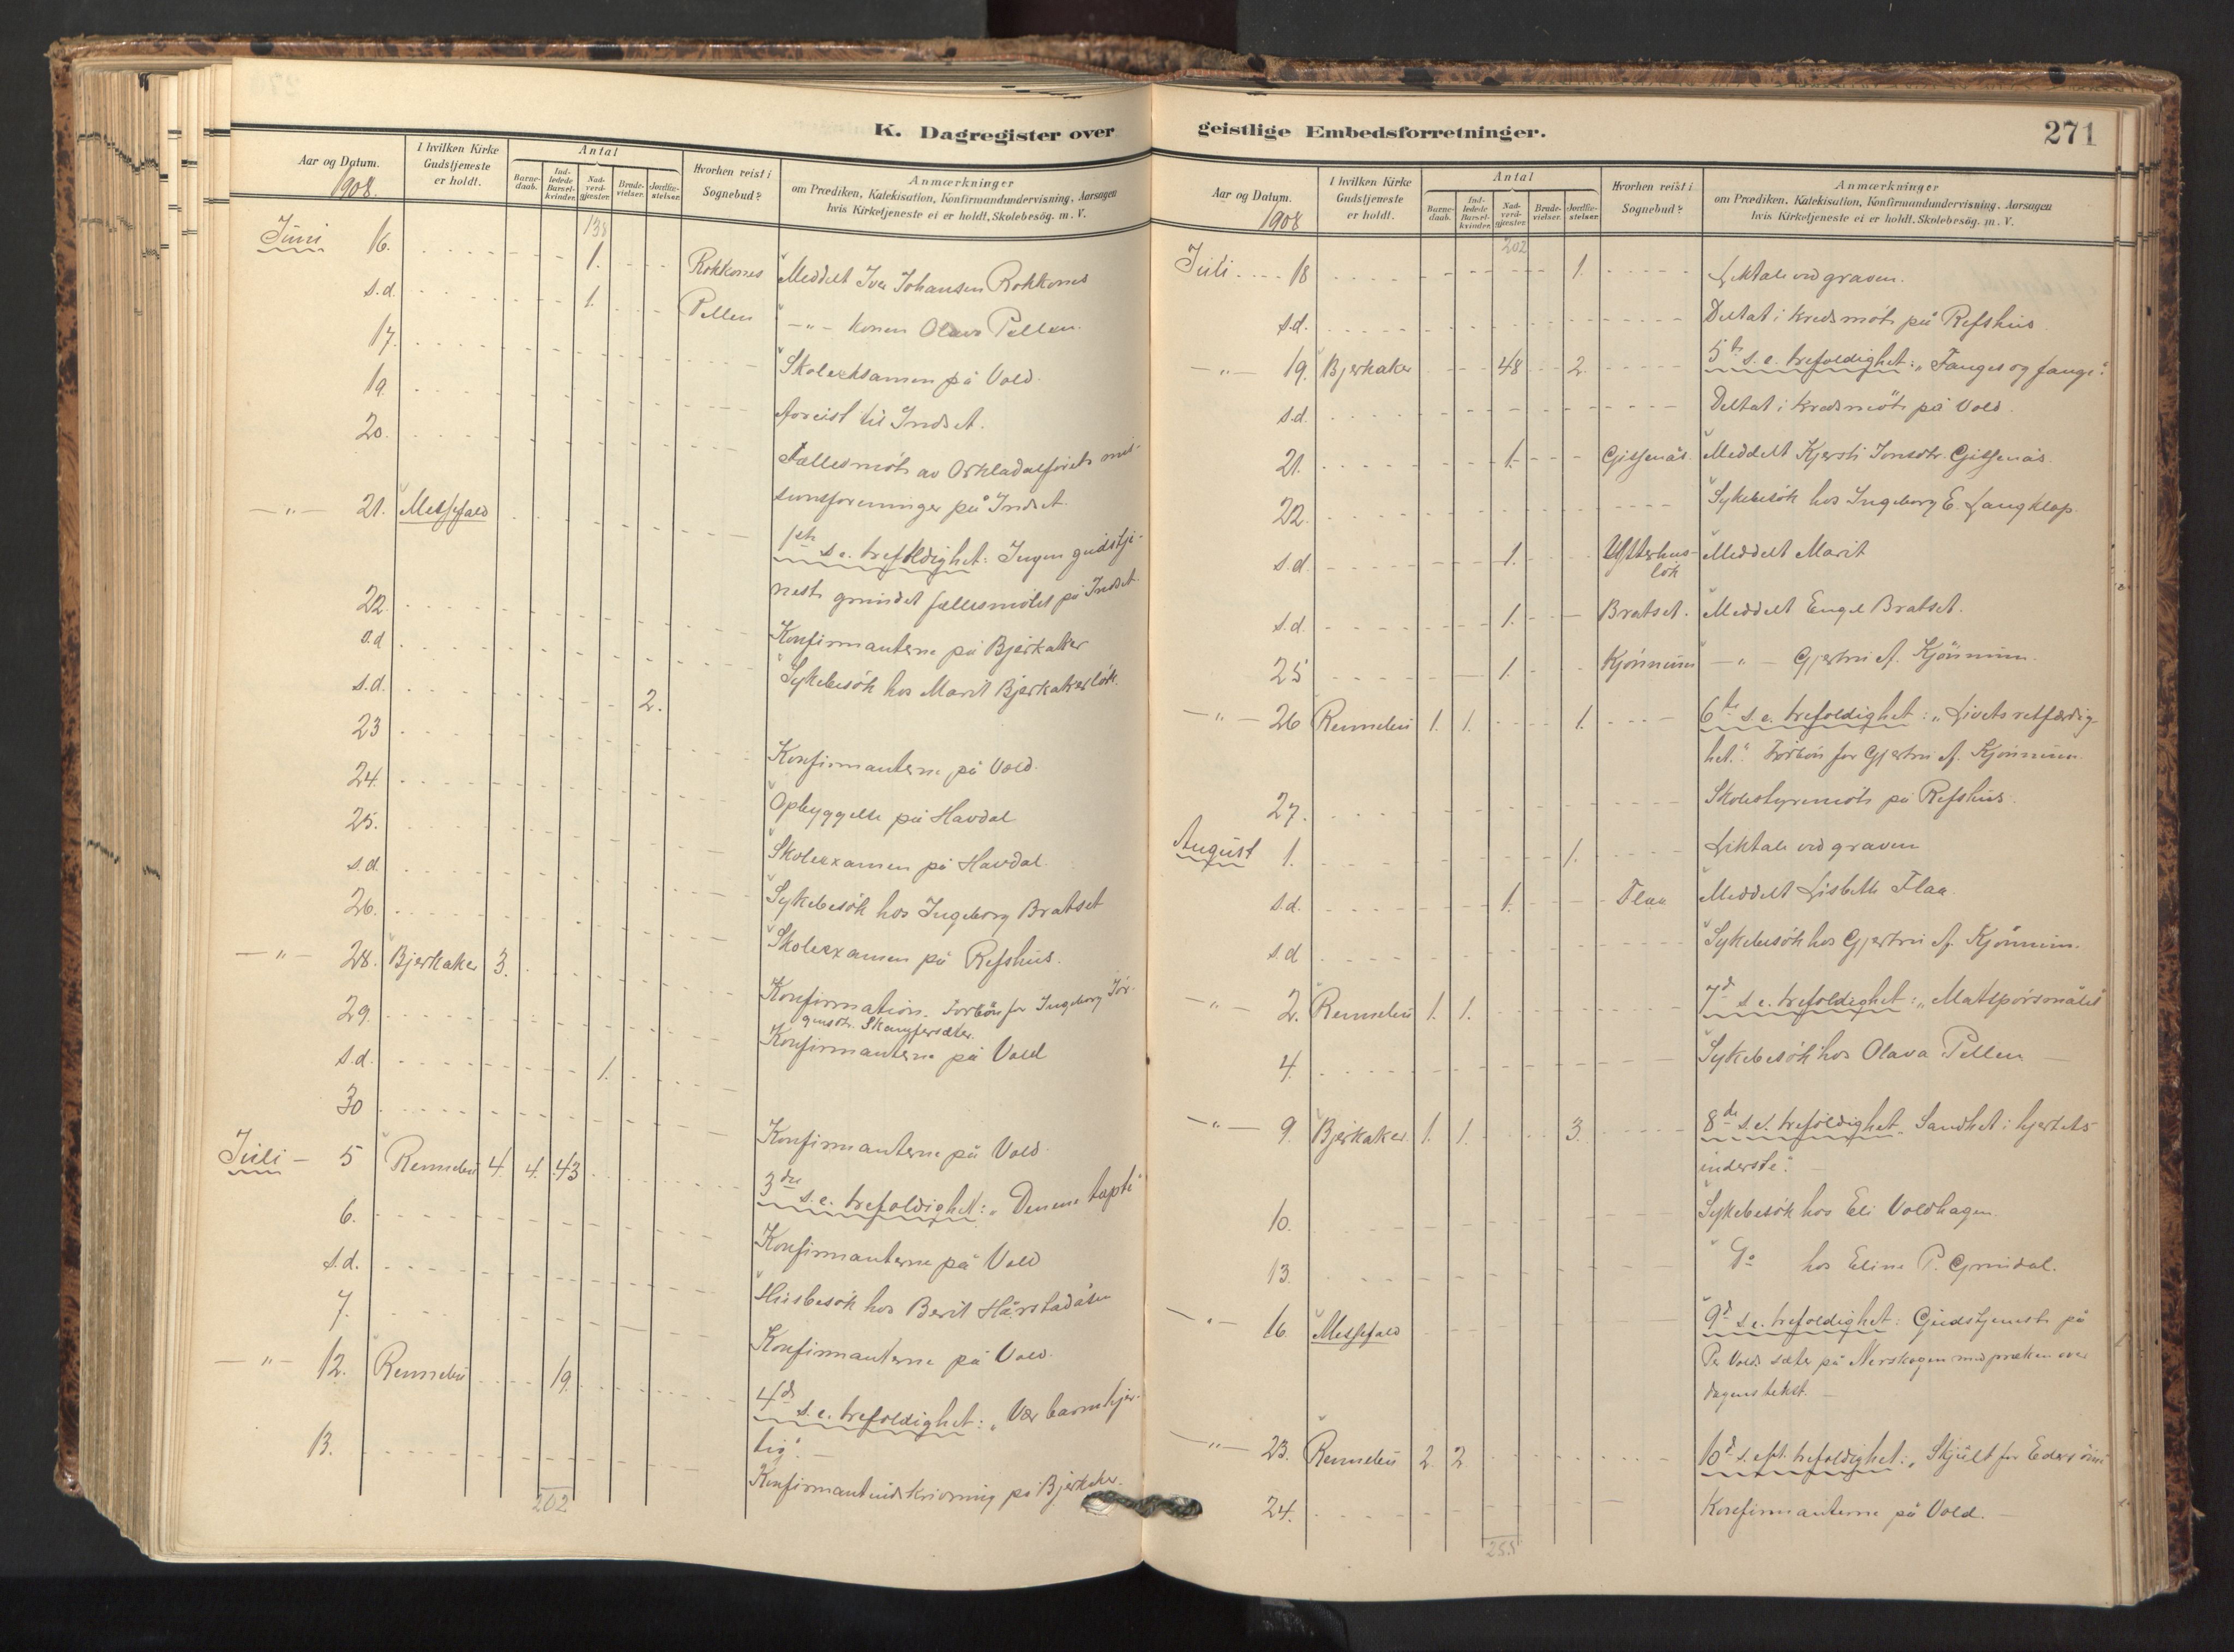 K. Dagregister over
Aar og Datum.
1908.
I hvilken Kirke
Gudstjeneste
er holdt.
Antal
Barne-
daab.
Ind-
ledede
Barsel-
kvinder.
Nad-
verd-
gjæster.
Brude-
vielser.
Jordfæ-
stelser.
Hvorhen reist i
Sognebud?
Anmærkninger
om Prædiken, Katekisation, Konfirmandundervisning, Aarsagen
hvis Kirketjeneste ei er holdt, Skolebesög. m. V.
138
Juni 16. 1. Rokkones Meddelt Iver Johansen Rokkones
s.d. 1. Pellen –„– konen Olava Pellen.
17. Skoleeksamen på Vold.
19. Avreist til Indset.
20. Fællesmöte av Orkladalförets mis-
sionsforeninger på Indset.
–„– 21. Messefald 1ste s. e. trefoldighet: Ingen gudstje-
neste grundet fællesmötet på Indset.
22. Konfirmanterne på Bjerkaker
s.d. Sykebesök hos Marit Bjerkakerlök.
s.d. 2.
23 Konfirmanterne på Vold.
24. Opbyggelse på Havdal
25. Skoleexamen på Havdal
s.d. Sykebesök hos Ingeborg Bratset
26. Skoleexamen på Refshus.
–„– 28. Bjerkaker 3. Konfirmation. Forbön for Ingeborg Jör-
gensdtr. Skamfersæter.
29. Konfirmanterne på Vold
s.d. 1.
30 Konfirmanterne på Vold
Juli – 5 Rennebu 4. 4. 43 3die s. e. trefoldighet: „Den ene tapte"
6. Konfirmanterne på Vold
s.d. Husbesök hos Berit Hårstadåsen
7. Konfirmanterne på Vold.
–„– 12. Rennebu 19. 4de s. e. trefoldighet: „Vær barmhjer-
tig".
13. Konfirmantindskrivning på Bjerkaker.
202
geistlige Embedsforretninger.
271
Aar og Datum.
1908
I hvilken Kirke
Gudstjeneste
er holdt.
Antal
Barne-
daab.
Ind-
ledede
Barsel-
kvinder.
Nad-
verd-
gjæster.
Brude-
vielser.
Jordfæ-
stelser.
Hvorhen reist i
Sognebud?
Anmærkninger
om Prædiken, Katekisation, Konfirmandundervisning, Aarsagen
hvis Kirketjeneste ei er holdt, Skolebesög. m. V.
202
Juli 18 1. Liktale ved graven.
s.d. Deltat i kredsmöte på Refshus
–„– 19. Bjerkaker 48 2. 5te s. e. trefoldighet: „Fanges og fange".
s.d. Deltat i kredsmöte på Vold.
21. 1. Gissenås. Meddelt Kjersti Jonsdtr. Gissenås.
22. Sykebesök hos Ingeborg E. Langklop.
s.d. 1. Usterhus-
lök Meddelt Marit
s.d. 1. Bratset. Meddelt Engel Bratset.
25 1. Kjönnum –„– Gjertru A. Kjönnum.
–„– 26 Rennebu 1. 1. 1. 6te s. e. trefoldighet: „Livets retfærdig-
het". Forbön for Gjertru A. Kjönnum.
27. Skolestyremöte på Refshus.
August 1. 1. Liktale ved graven
s.d. 1. Flaa Meddelt Lisbeth Flaa.
s.d Sykebesök hos Gjertru A. Kjönnum.
–„– 2. Rennebu 1. 1. 7de s. e. trefoldighet: „Matspörsmålet"
4. Sykebesök hos Olava Pellen
–„– 9. Bjerkaker 1. 1. 3. 8de s. e. trefoldighet. Sandhet i hjertets
inderste".
10. Sykebesök hos Eli Voldhagen.
13. Do hos Eline P. Grindal.
–„– 16. Messefald 9de s. e. trefoldighet: Gudstjeneste på
Per Volds sæter på Nerskogen med præken over
dagens tekst.
–„– 23. Rennebu 2. 2. 10de s. eft. trefoldighet: „Skjult for Eders öine"
24. Konfirmanterne på Vold.
255